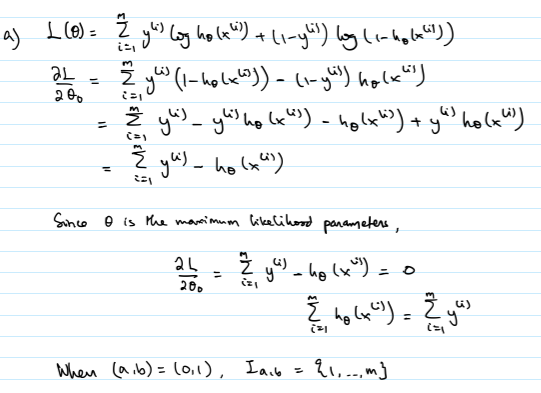 a) L(θ) = Σ_{i=1}^{m} y^{(i)} log h_θ(x^{(i)}) + (1-y^{(i)}) log (1-h_θ(x^{(i)}))
∂L/∂θ₀ = Σ_{i=1}^{m} y^{(i)} (1-h_θ(x^{(i)})) - (1-y^{(i)}) h_θ(x^{(i)})
= Σ_{i=1}^{m} y^{(i)} - y^{(i)} h_θ(x^{(i)}) - h_θ(x^{(i)}) + y^{(i)} h_θ(x^{(i)})
= Σ_{i=1}^{m} y^{(i)} - h_θ(x^{(i)})
Since θ is the maximum likelihood parameters,
∂L/∂θ₀ = Σ_{i=1}^{m} y^{(i)} - h_θ(x^{(i)}) = 0
Σ_{i=1}^{m} h_θ(x^{(i)}) = Σ_{i=1}^{m} y^{(i)}
When (a,b) = (0,1), I_{a,b} = {1,...,m}